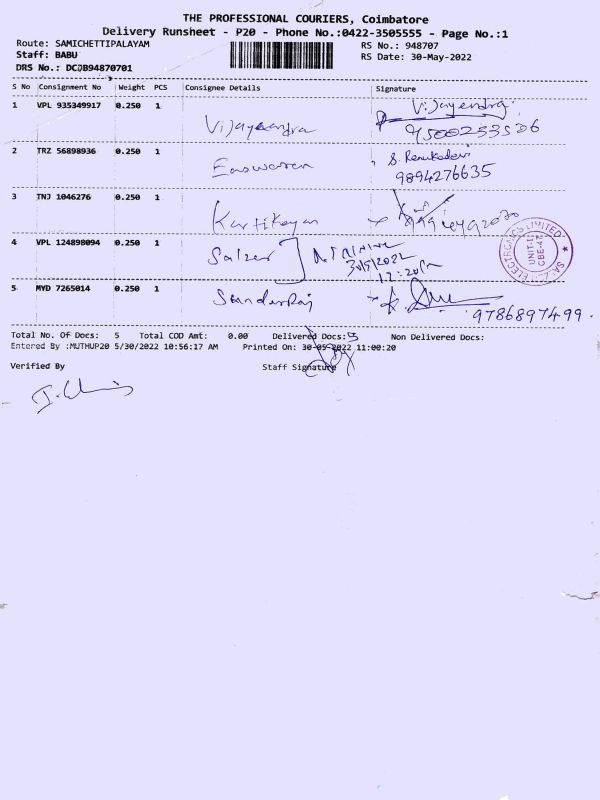 THE PROFESSIONAL COURIERS, Coimbatore
Delivery Runsheet - P20 - Phone No.:0422-3505555 - Page No.:1
Route: SAMICHETTIPALAYAM RS No.: 948707
Staff: BABU RS Date: 30-May-2022
DRS No.: DCJB94870701
S No Consignment No Weight PCS Consignee Details Signature
1 VPL 935349917 0.250 1 Vijayendra Vijayendra
2 TRZ 56898936 0.250 1 Easwaren S. Renukadevi
9894276635
3 TNJ 1046276 0.250 1 Kartikeyan
4 VPL 124898094 0.250 1 Salzer
30/5/2022
SALZER ELECTRONICS LIMITED
UNIT-II
CBE-47
5 MYD 7265014 0.250 1
9786897499.
Total No. Of Docs: 5 Total COD Amt: 0.00 Delivered Docs: 5 Non Delivered Docs:
Entered By :MUTHUP20 5/30/2022 10:56:17 AM Printed On: 30-05-2022 11:00:20
Verified By Staff Signature